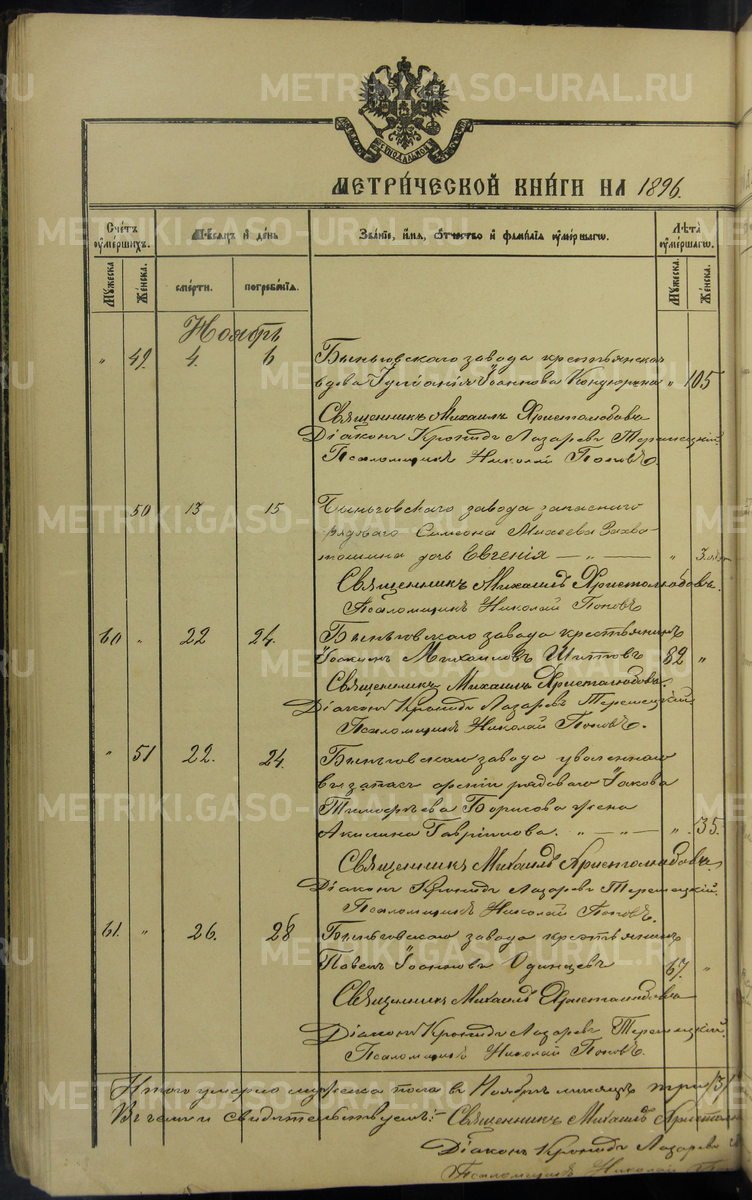 METRIKI.GASO-URAL.RU
СѴНОДАЛЬНОЙ
МЕТРИ́ЧЕСКОЙ КНИ́ГИ НА 1896.
Сче́тъ
ѹ҆ме́ршихъ.
Мѣ́сяцъ и҆ де́нь
Зва́нїе, и҆́мя, ѻ҆́тчество и҆ фами́лїя ѹ҆ме́ршагѡ.
Лѣ́та
ѹ҆ме́ршагѡ.
Мꙋ́жеска.
Же́нска.
сме́рти.
погребе́нїя.
Мꙋ́жеска.
Же́нска.
Ноябрь
" 49. 4. 6 Быньговскаго завода крестьянская
вдова Іуліанія Іоаннова Кондюрина " 105
Священникъ Михаилъ Христолюбовъ
Діаконъ Кронидъ Лазаревъ Терешецкій.
Псаломщикъ Николай Поповъ.
50 13 15 Быньговскаго завода запаснаго
рядоваго Симеона Михеева Захва-
тошина дочь Евгенія — " — " 3
Священникъ Михаилъ Христолюбовъ.
Псаломщикъ Николай Поповъ
60 " 22 24. Быньговскаго завода крестьянинъ
Іоакимъ Михаиловъ Шитовъ 82 "
Священникъ Михаилъ Христолюбовъ.
Діаконъ Кронидъ Лазаревъ Терешецкій
Псаломщикъ Николай Поповъ.
" 51 22. 24. Быньговскаго завода уволеннаго
въ запасъ арміи рядоваго Іакова
Тимофѣева Борисова жена
Акилина Гавріилова. " — " — " 35.
Священникъ Михаилъ Христолюбовъ.
Діаконъ Кронидъ Лазаревъ Терешецкій.
Псаломщикъ Николай Поповъ.
61. " 26. 28 Быньговскаго завода крестьянинъ
Павелъ Іоанновъ Одинцевъ 67. "
Священникъ Михаилъ Христолюбовъ
Діаконъ Кронидъ Лазаревъ Терешецкій.
Псаломщикъ Николай Поповъ.
Итого умерло мужеска пола въ Ноябрѣ мѣсяцѣ три /3/
В чемъ и свидѣтельствуемъ: Священникъ Михаилъ Христолю
Діаконъ Кронидъ Лазаревъ
Псаломщикъ Николай По